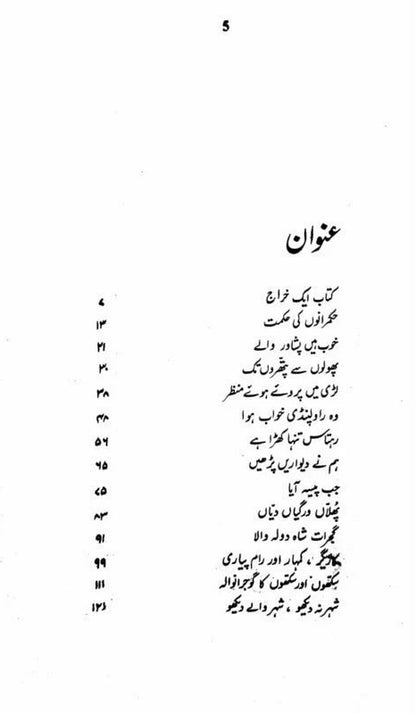 5
عنوان
کتاب ایک خراج ۷
حکمرانوں کی حکمت ۱۳
خوب ہیں پشاور والے ۲۱
پھولوں سے پتھروں تک ۳۰
لڑی میں پروئے ہوئے منظر ۳۸
وہ راولپنڈی خواب ہوا ۴۸
رہتاس تنہا کھڑا ہے ۵۶
ہم نے دیواریں پڑھیں ۶۵
جب پیسہ آیا ۷۵
پھلاں ورگیاں دیاں ۸۳
گجرات شاہ دولہ والا ۹۱
کاریگر ، کمہار اور رام پیاری ۹۹
سکھوں اور سکھوں کا گوجرانوالہ ۱۱۱
شہر نہ دیکھو ، شہر والے دیکھو ۱۲۱